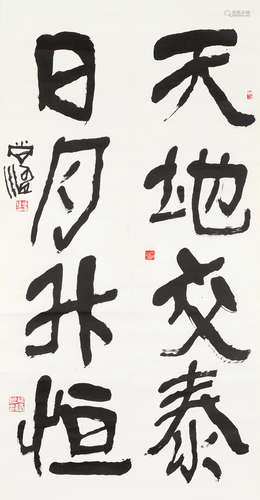 天地交泰
日月升恒